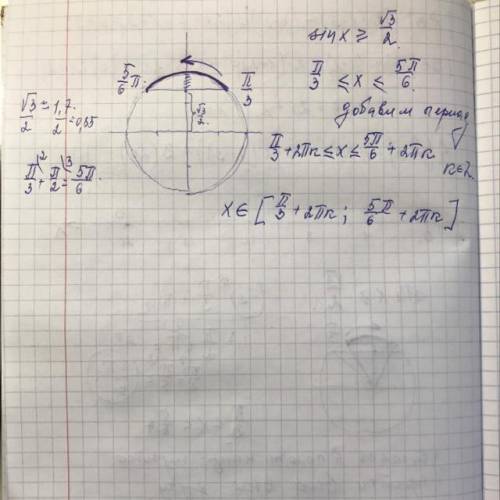 sin x ≥ √3/2
π/3 ≤ x ≤ 5π/6
добавим период
π/3 + 2πк ≤ x ≤ 5π/6 + 2πк
к∈Z.
x ∈ [π/3 + 2πк ; 5/6 π + 2πк]
5/6 π
π/3
√3/2
√3/2 ≈ 1,7/2 = 0,85
π/3 \2 + π/2 \3 = 5π/6.